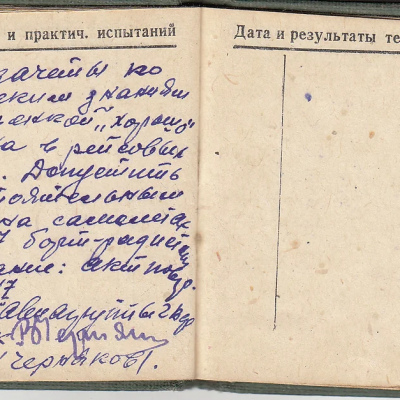 и практич. испытаний
Дата и результаты те
зачеты ко
ским знаниям
ценкой „хорошо"
на в рейсовых
. Допустить
тоятельным
на самолетах
7 борт-радистом
ание: акт повер.
17
Черняков).